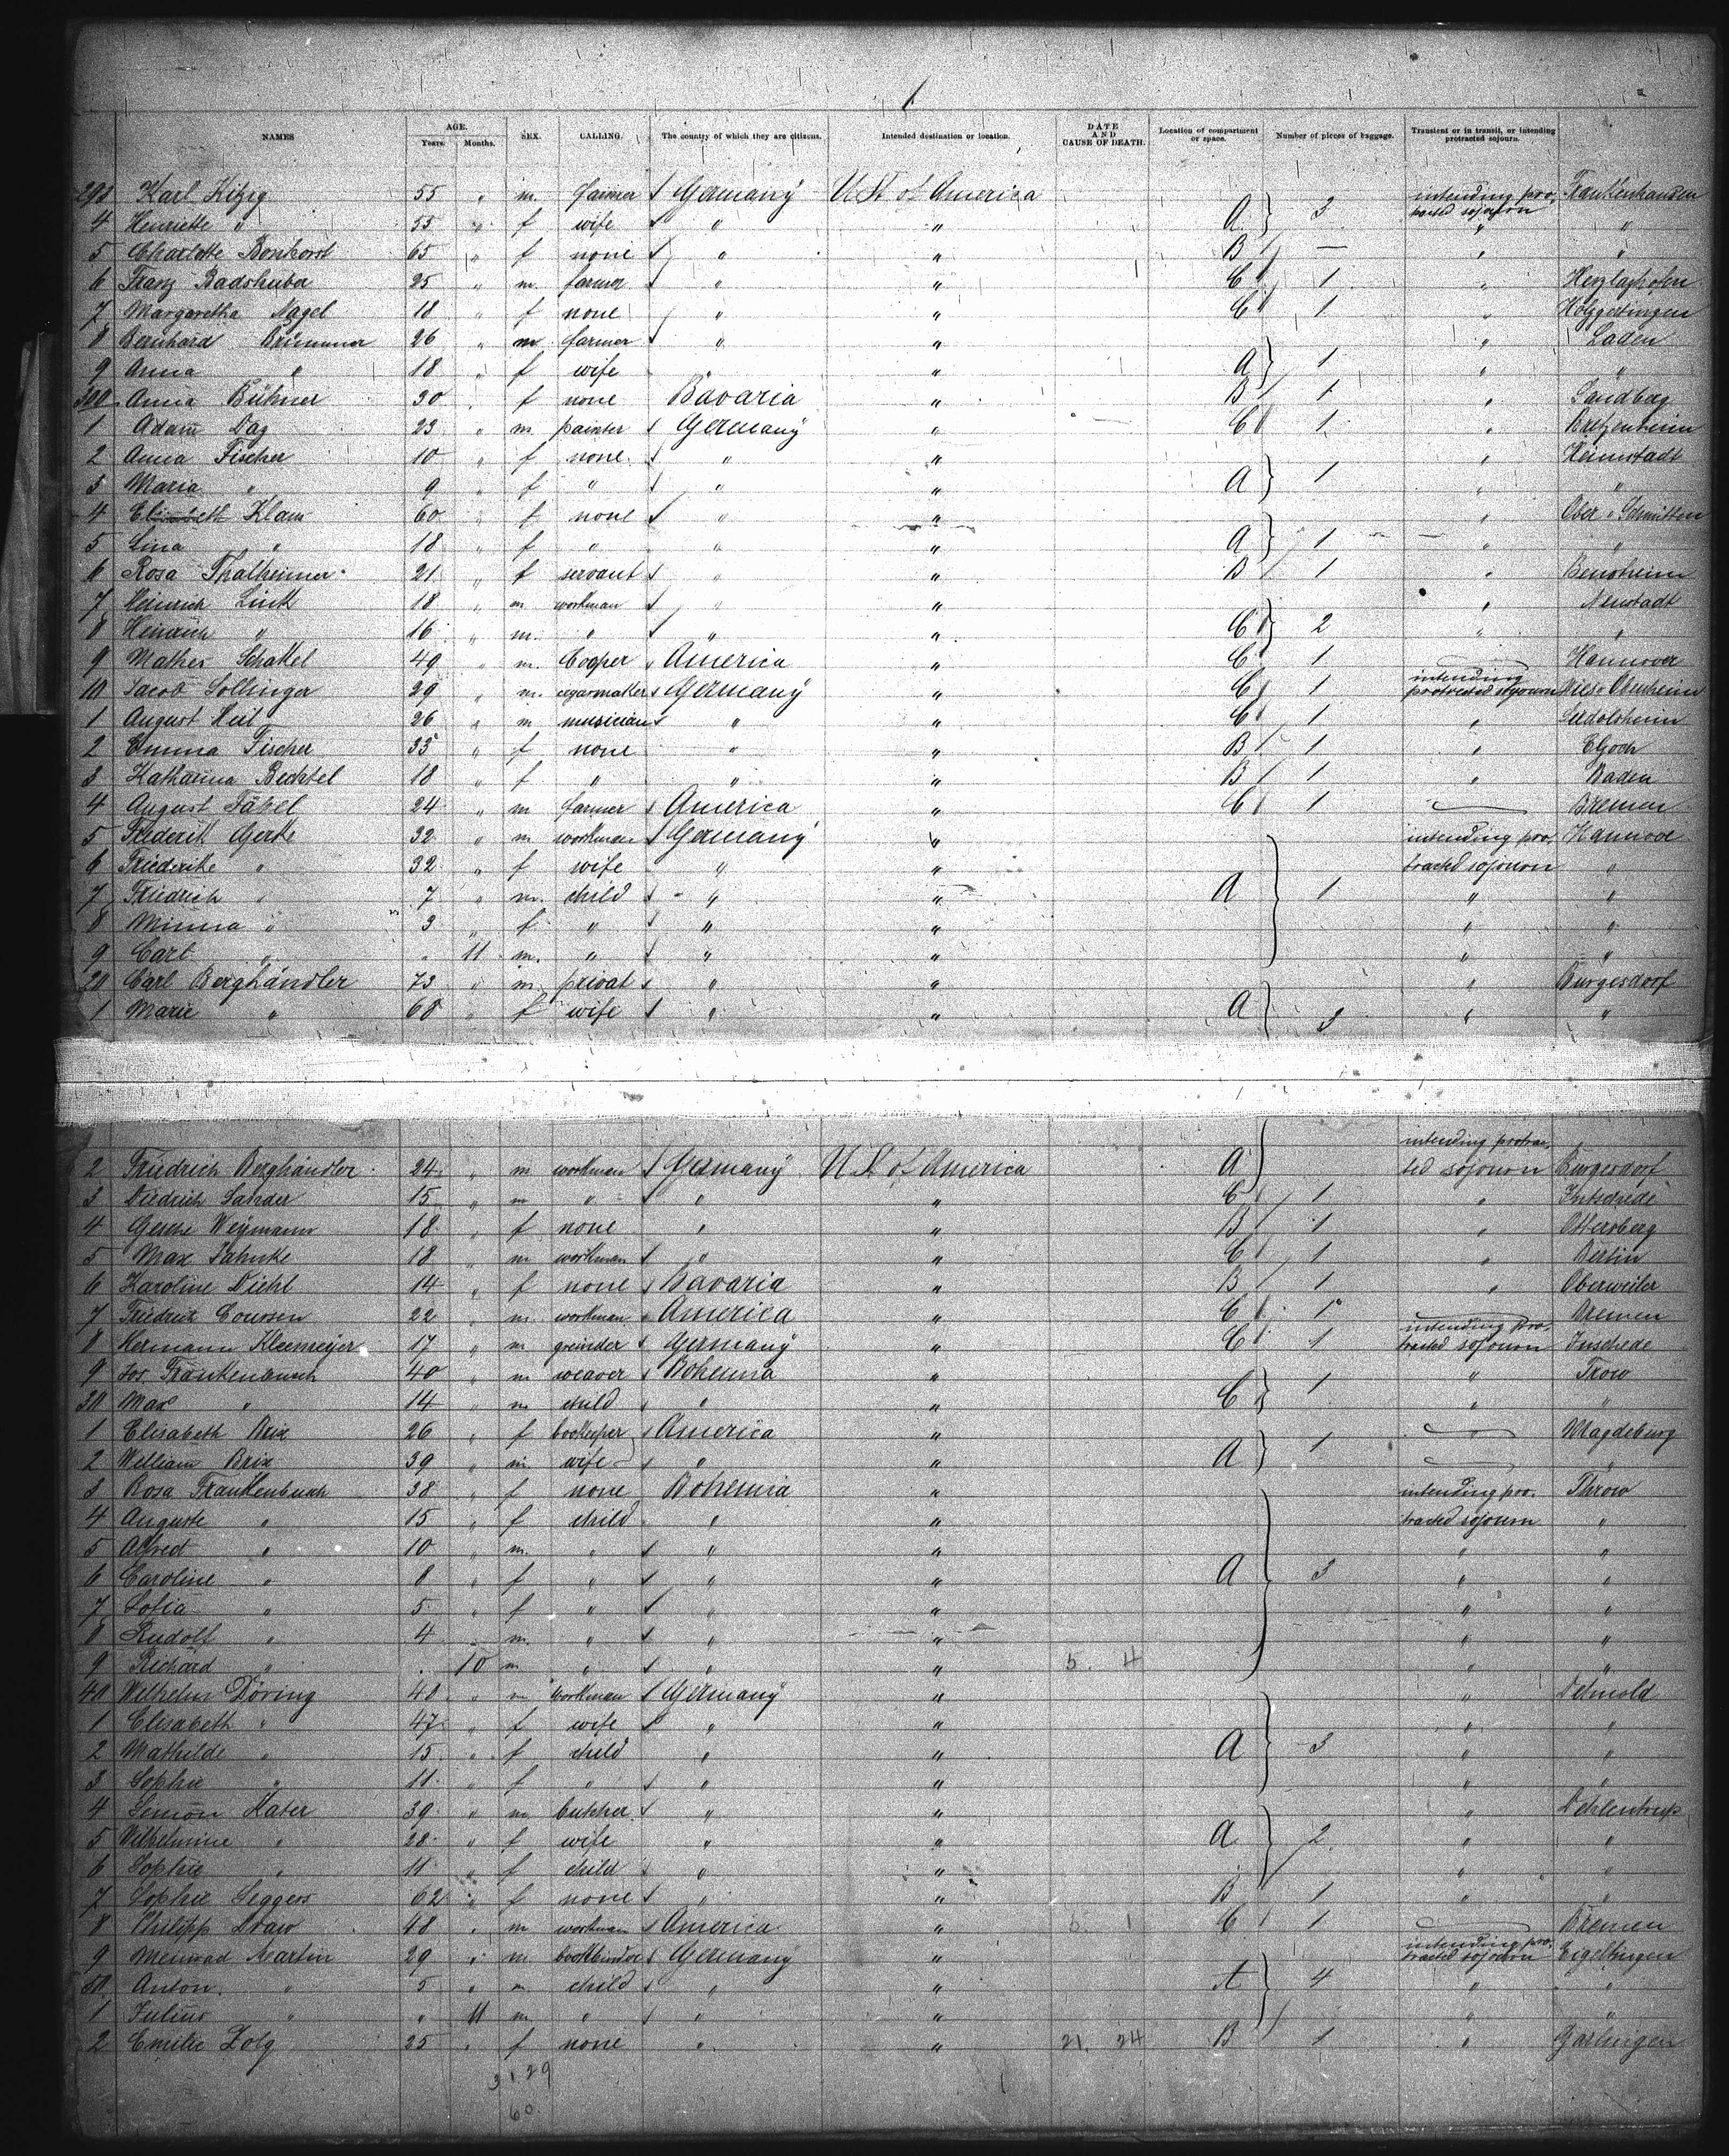 1
NAMES AGE. Years. Months. SEX. CALLING. The country of which they are citizens. Intended destination or location. DATE AND CAUSE OF DEATH. Location of compartment or space. Number of pieces of baggage. Transient or in transit, or intending protracted sojourn.
293 Karl Kitzig 55 " m. farmer Germany U.St. of America A } 3 intending protracted sojourn Frankenhausen
4 Henriette " 55 " f wife " " " "
5 Charlotte Bonhorst 65 " f none " " B — " "
6 Franz Badshuber 25 " m. farmer " " C 1 "
7 Margaretha Nagel 18 " f none " " C 1 "
8 Bernhard Brümmer 26 " m farmer " " A } 1 " Laden
9 Anna " 18 " f wife " " " "
300 Anna Bühner 30 " f none Bavaria " B 1 " Sandberg
1 Adam Dag 23 " m. painter Germany " C 1 " Bretzenheim
2 Anna Fischer 10 " f none " " A } 1 " Heimstadt
3 Maria " 9 " f " " " " "
4 Elisabeth Klaus 60 " f none " " A } 1 " Ober-Schmitten
5 Lina " 18 " f " " " " "
6 Rosa Thalheimer 21 " f servant " " B 1 " Bensheim
7 Heinrich Link 18 " m workman " " C } 2 " Neustadt
8 Heinrich " 16 " m. " " " " "
9 Mathes Schakel 49 " m. Cooper America " C 1 Hannover
10 Jacob Sollinger 29 " m. cigarmaker Germany " C 1 intending protracted sojourn
1 August Heil 26 " m musician " " C 1 " Liedolsheim
2 Emma Fischer 35 " f none " " B 1 "
3 Katharina Bechtel 18 " f " " " B 1 " Baden
4 August Fäkel 24 " m farmer America " C 1 Bremen
5 Frederik Gerke 32 " m workman Germany " A } 1 intending protracted sojourn Hannover
6 Friederike " 32 " f wife " " "
7 Friedrich " 7 " m. child " " " "
8 Minna " 3 " f " " " " "
9 Carl " " 11 m. " " " " "
20 Carl Berghändler 73 " m. privat " " " Burgesdorf
1 Marie " 68 " f wife " " A } 3 " "
2 Friedrich Berghändler 24 " m workman Germany U.S. of America A } intending protracted sojourn Burgesdorf
3 Diedrich Sander 15 " m " " " C 1 " Intschede
4 Gesche Weymann 18 " f none " " B 1 " Ottersberg
5 Max Jahnke 18 " m workman " " C 1 " Berlin
6 Karoline Diehl 14 " f none Bavaria " B 1 " Oberweiler
7 Friedrich Coursen 22 " m. workman America " C 1 Bremen
8 Hermann Kleemeyer 17 " m greinder Germany " C 1 intending protracted sojourn Inschede
9 Jos. Frankenbusch 40 " m weaver Bohemia " C } 1 " Trow
30 Max " 14 " m child " " " "
1 Elisabeth Brix 26 " f bookeeper America " A } 1 Magdeburg
2 William Brix 39 " m. wife " " "
3 Rosa Frankenbusch 38 " f none Bohemia " A } 3 intending protracted sojourn Throw
4 Auguste " 15 " f child " " "
5 Alfred " 10 " m. " " " " "
6 Caroline " 8 " f " " " " "
7 Sofia " 5 " f " " " " "
8 Rudolf " 4 " m. " " " " "
9 Richard " " 10 m " " " 5. 4 " "
40 Wilhelm Döring 48 " m workman Germany " A } 3 " Detmold
1 Elisabeth " 47 " f wife " " " "
2 Mathilde " 15 " f child " " " "
3 Sophie " 11 " f " " " " "
4 Simon Kater 39 " m butcher " " A } 2 " Dehlentrup
5 Wilhelmine " 28 " f wife " " " "
6 Sophie " 11 " f child " " " "
7 Sophie Seggers 62 " f none " " B 1 " "
8 Philipp Draw 48 " m workman America " 5. 1 C 1 Bremen
9 Meinrad Martin 29 " m bookbinder Germany " A } 4 intending protracted sojourn Eigeltingen
50 Anton " 5 " m child " " " "
1 Julius " " 11 m " " " " "
2 Emilie Zolg 25 " f none " " 21. 24 B 1 "
3 1.29
60